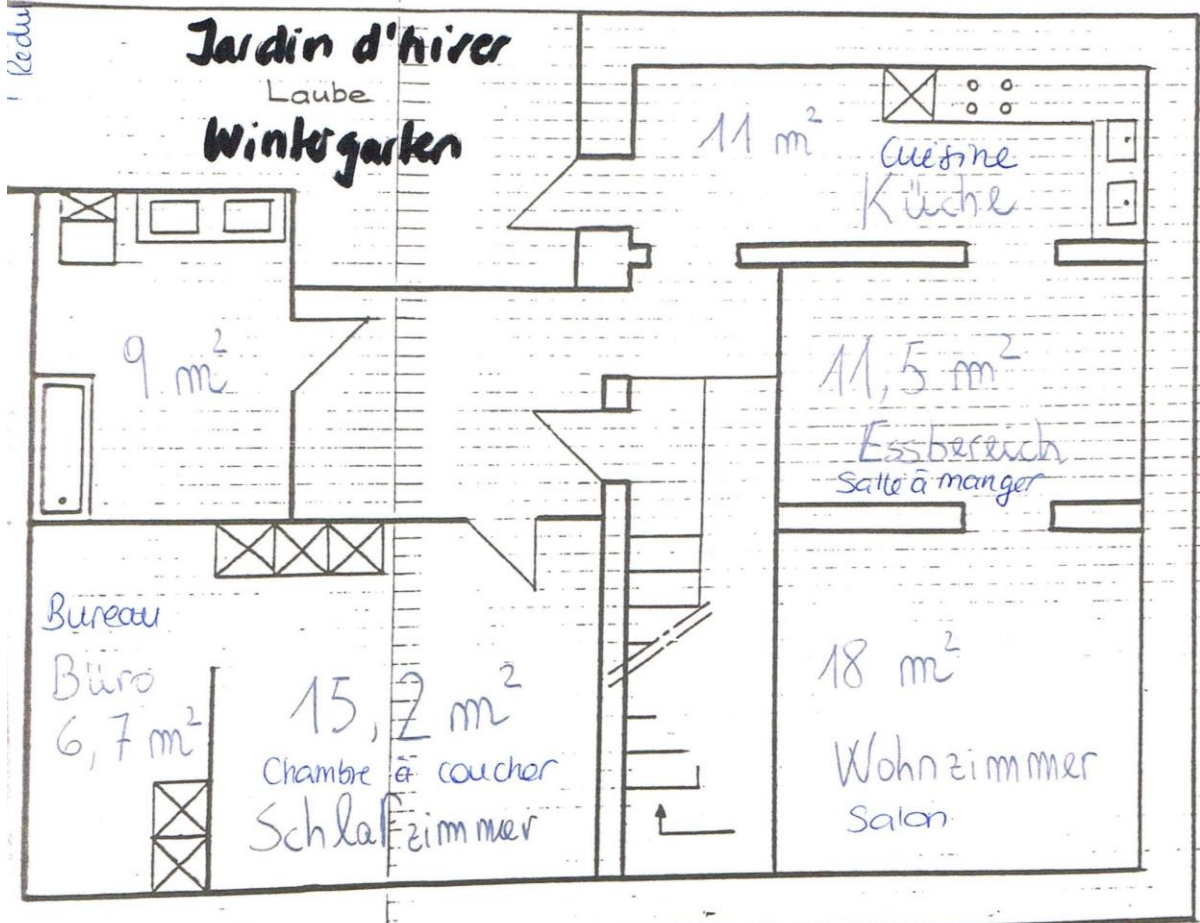 Jardin d'hiver
Laube
Wintergarten
11 m²
Cuisine
Küche
9 m²
11,5 m²
Essbereich
Salle à manger
Bureau
Büro
6,7 m²
15,2 m²
Chambre à coucher
Schlafzimmer
18 m²
Wohnzimmer
Salon